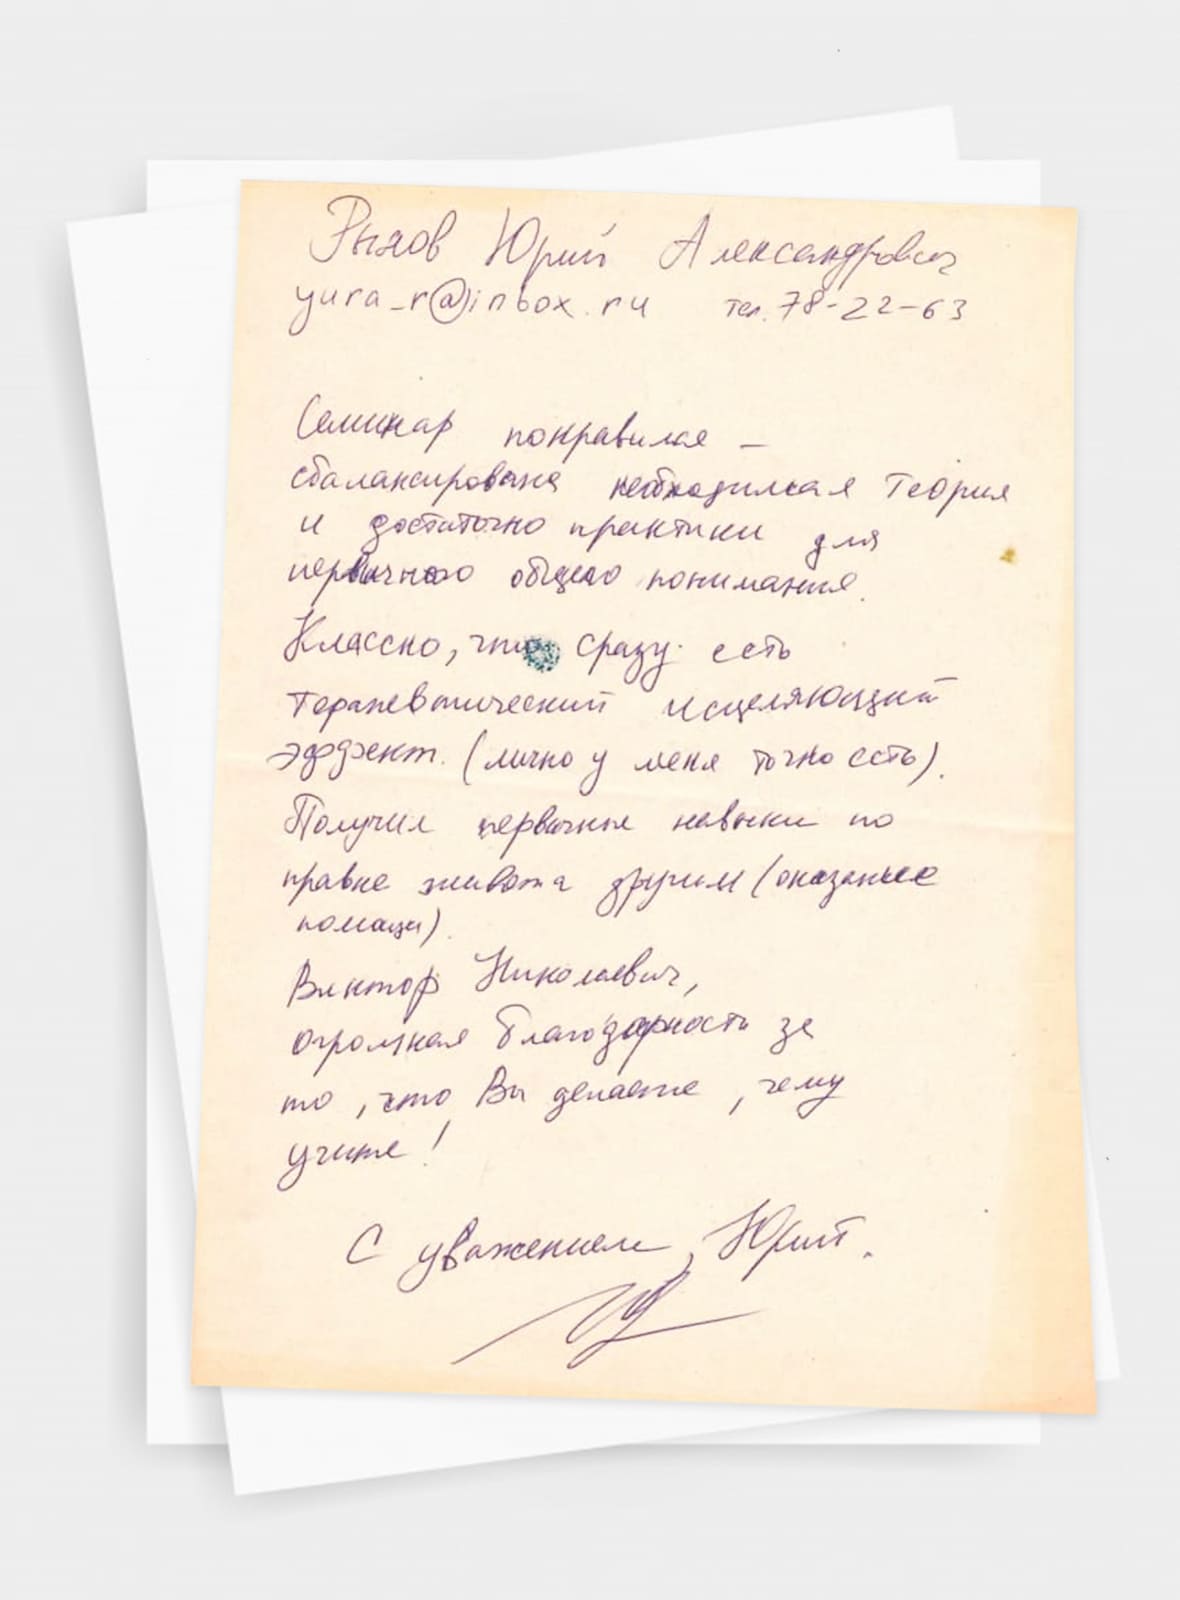 Рыхов Юрий Александрович
yura_r@inbox.ru тел. 78-22-63
Семинар понравился –
сбалансирована необходимая теория
и достаточно практики для
первичного общего понимания.
Классно, что сразу есть
терапевтический исцеляющий
эффект. (лично у меня точно есть).
Получил первичные навыки по
правке живота другим (оказание
помощи).
Виктор Николаевич,
огромная благодарность за
то, что Вы делаете, чему
учите!
С уважением, Юрий.